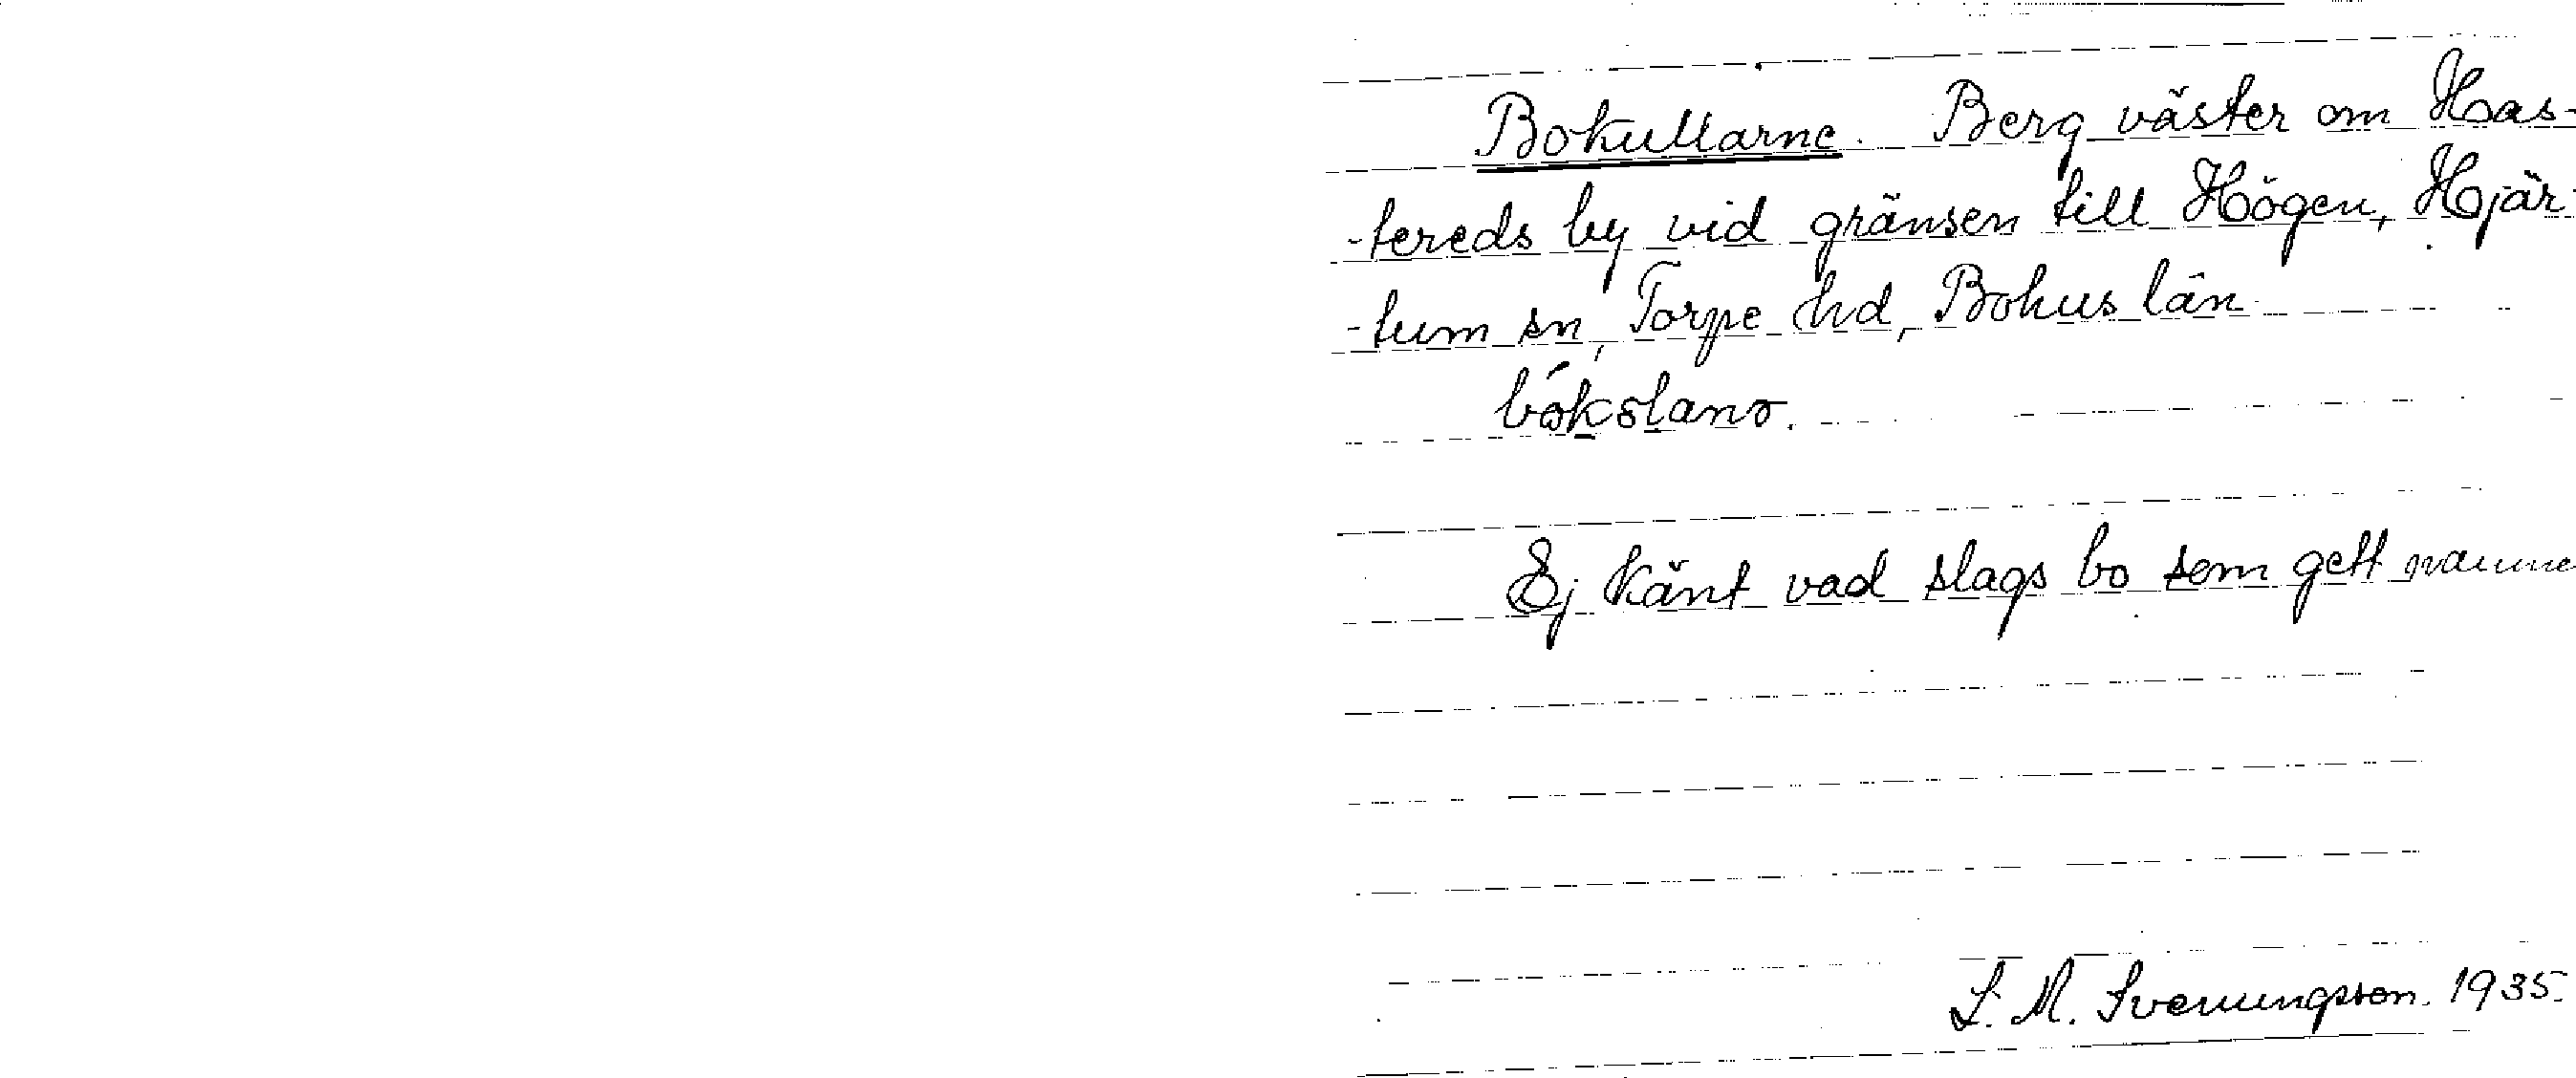 Bokullarne. Berg väster om Has-
-tereds by vid gränsen till Högen, Hjär-
-tum sn, Torpe hd, Bohus län
Ej känt vad slags bo som gett namne
L. M. Svenungsson. 1935.